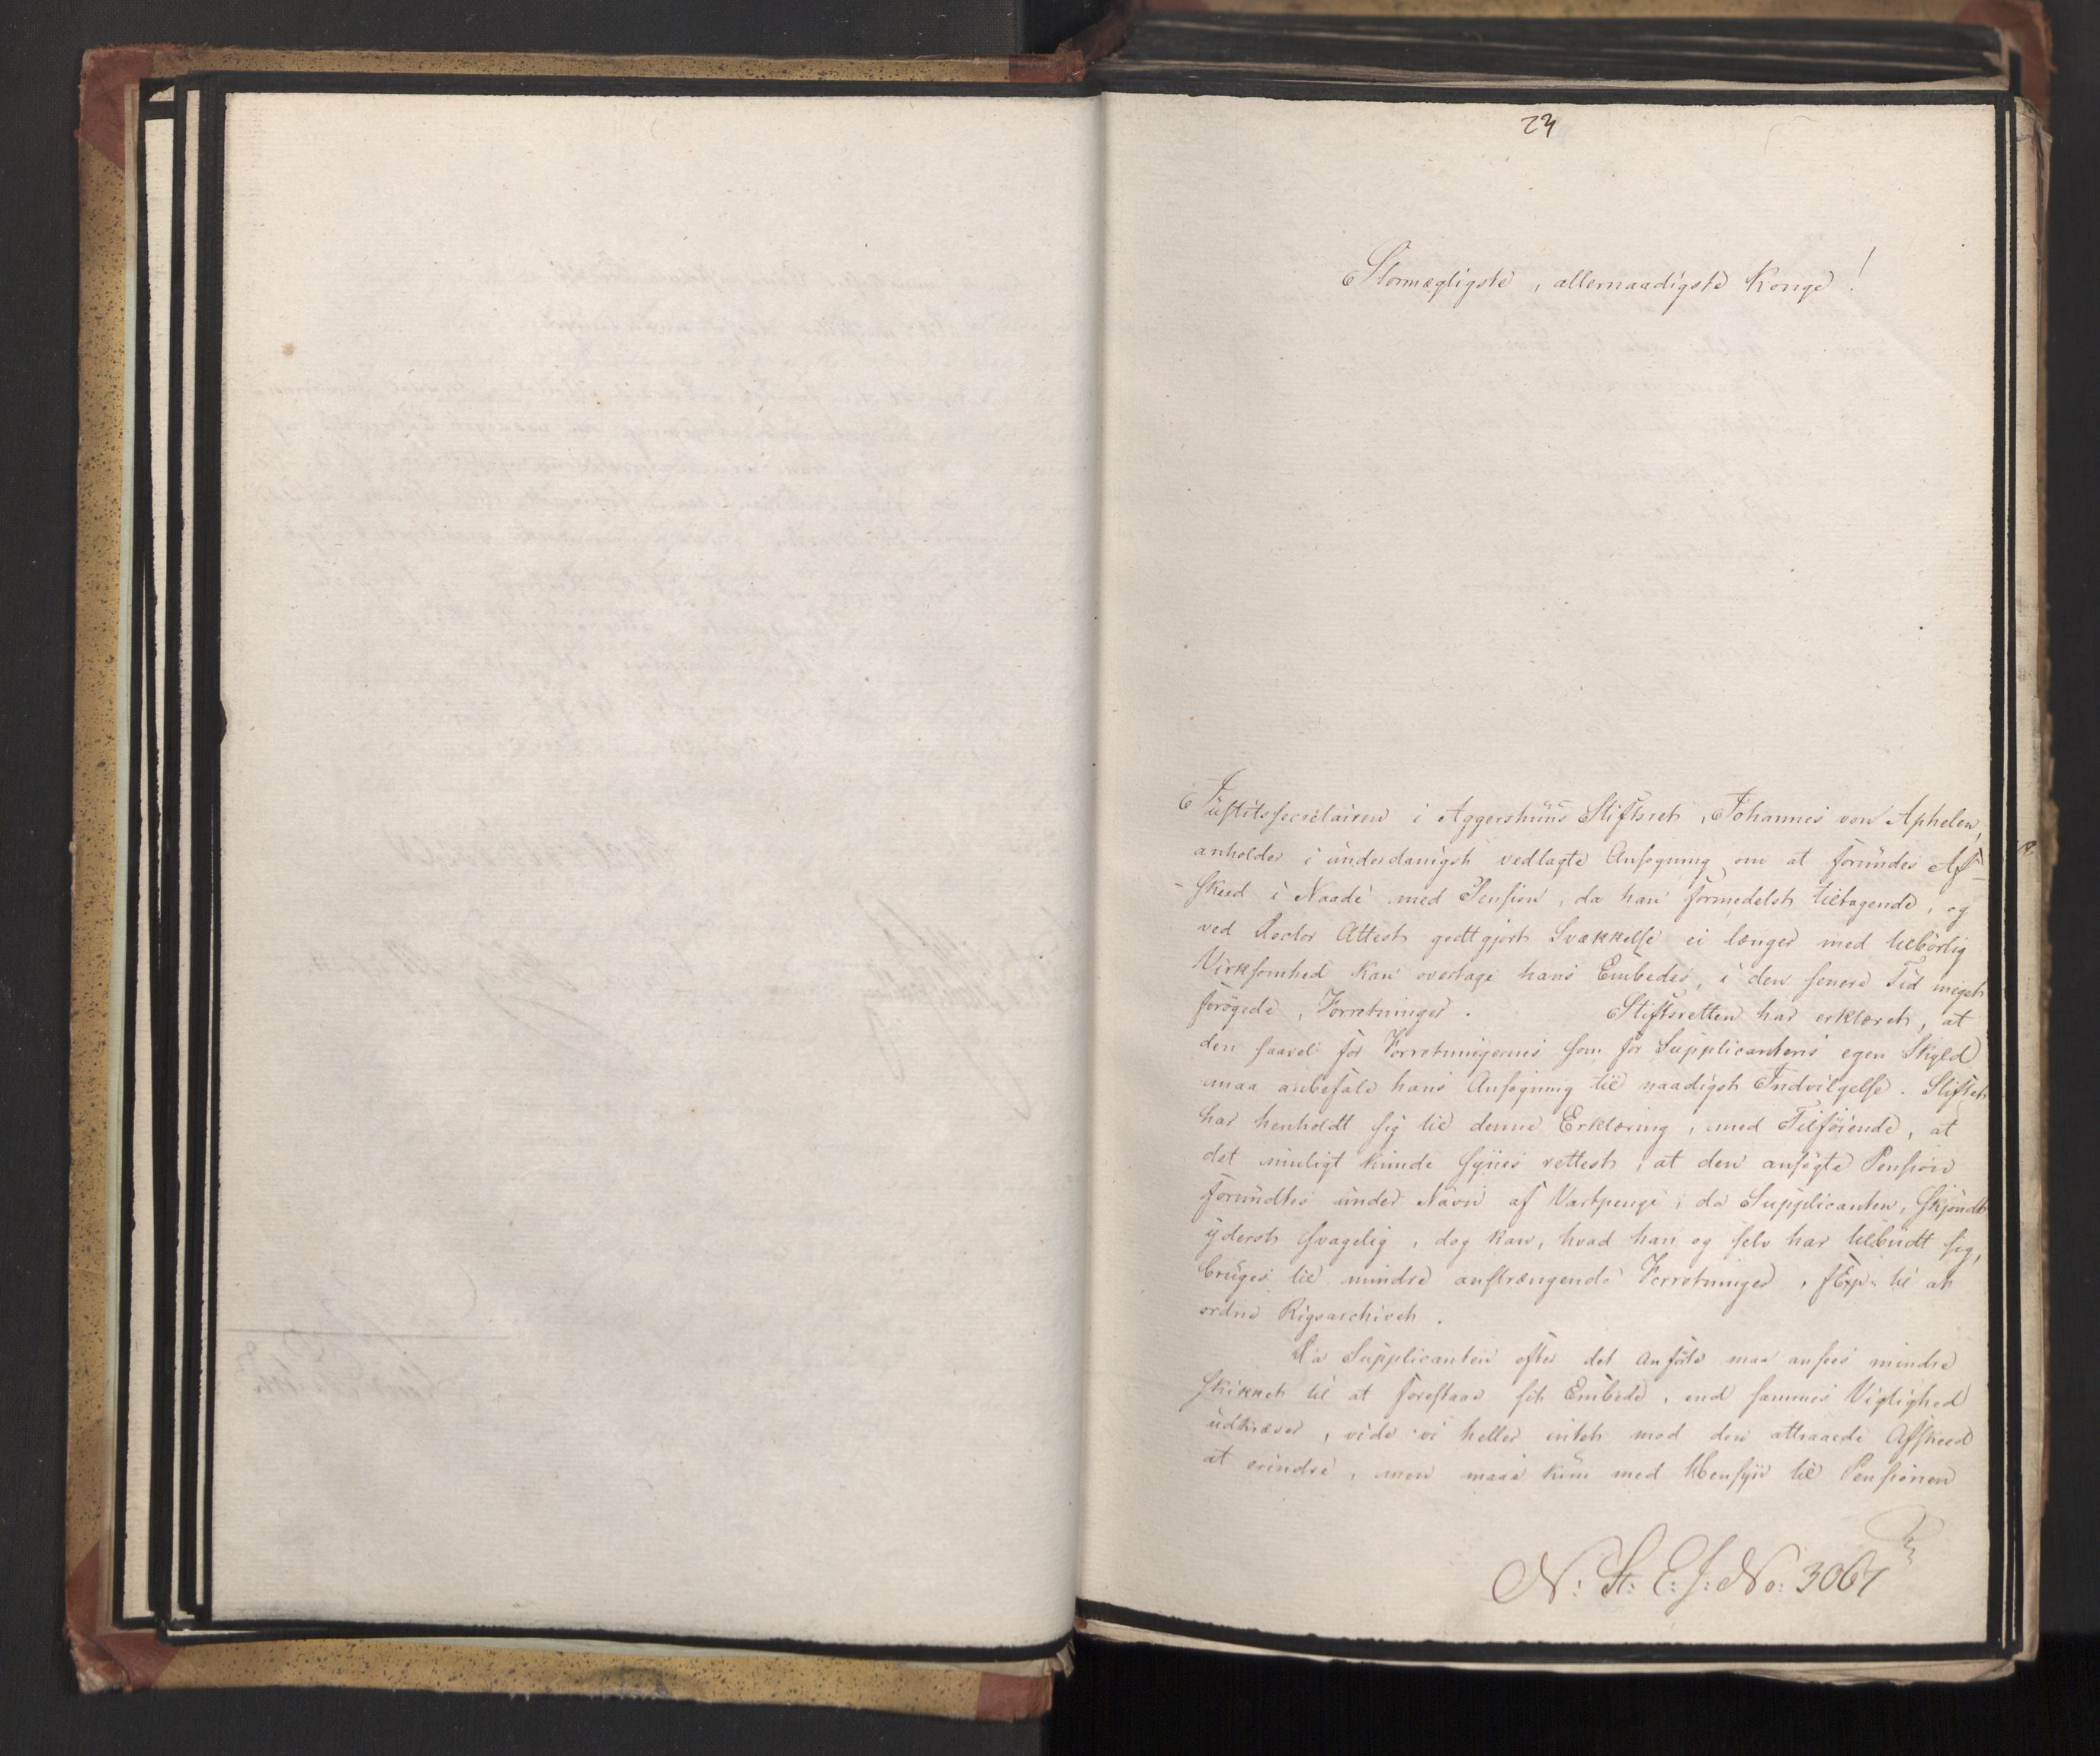 23
Stormægtigste, allernaadigste Konge!
Justitssecretairen i Aggershuus Stiftsret, Johannes von Aphelen,
anholder i underdanigst vedlagte Ansøgning om at forundes Af-
-skeed i Naade med Pension, da han formedelst tiltagende, og
ved Doctor Attest godtgjort Svækkelse ei længer med tilbørlig
Virksomhed kan overtage hans Embedes, i den senere Tid meget
forøgede, Forretninger. Stiftsretten har erklæret, at
den saavel for Forretningernes som for Supplicantens egen Skyld
maa anbefale hans Ansøgning til naadigst Indvilgelse. Stiftet
har henholdt sig til denne Erklæring, med Tilføiende, at
det muligt kunde synes rettest, at den ansøgte Pension
forundtes under Navn af Vartpenge, da Supplicanten, skjøndt
yderst svagelig, dog kan, hvad han og selv har tilbudt sig,
bruges til mindre anstrængende Forretninger, f Exp. til at
ordne Rigsarchivet.
Da Supplicanten efter det Anførte maa ansees mindre
skikket til at forestaae sit Embede, end sammes Vigtighed
udkræver, vide vi heller intet mod den attraaede Afskeed
at erindre, men maae kun med Hensyn til Pensionen
N: St: C: J: No: 3067